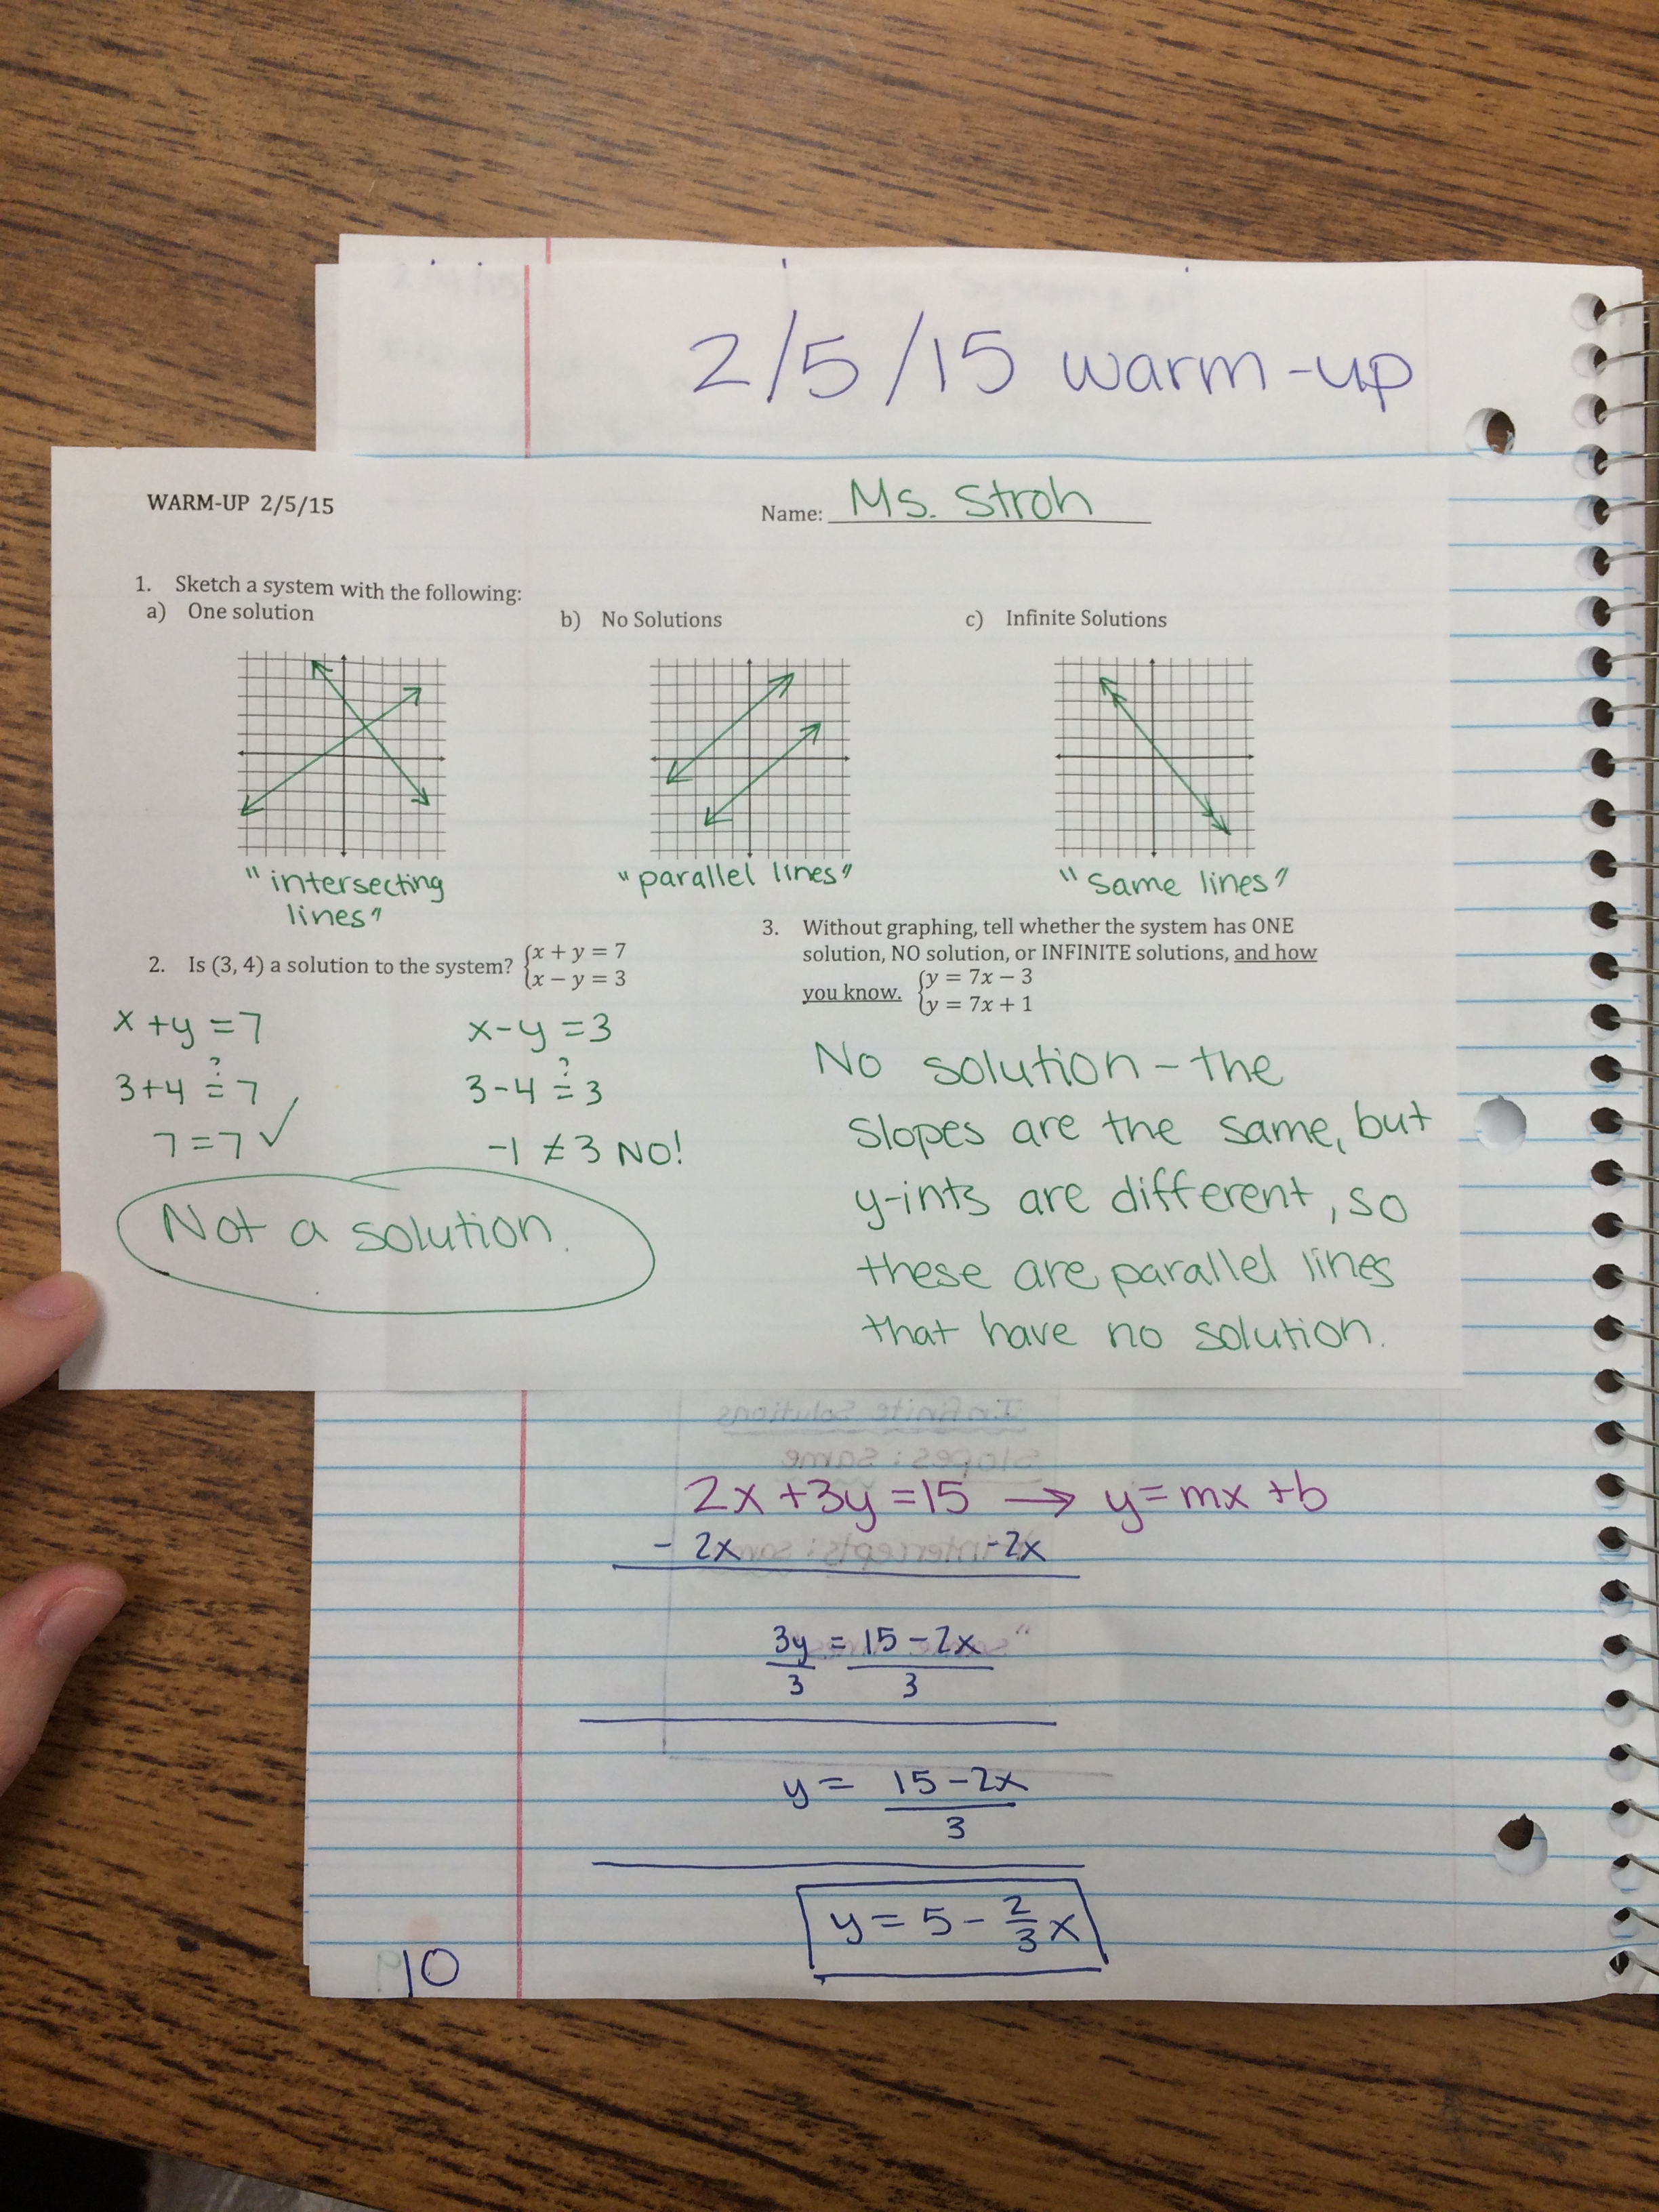 2/5/15 warm-up
WARM-UP 2/5/15
Name: Ms. Stroh
1. Sketch a system with the following:
a) One solution
b) No Solutions
c) Infinite Solutions
"intersecting
lines"
"parallel lines"
"same lines"
2. Is (3, 4) a solution to the system? {x + y = 7
x − y = 3
x + y = 7
3+4 ≟ 7
7 = 7 ✓
x - y = 3
3 - 4 ≟ 3
-1 ≠ 3 NO!
Not a solution.
3. Without graphing, tell whether the system has ONE
solution, NO solution, or INFINITE solutions, and how
you know. {y = 7x − 3
y = 7x + 1
No solution - the
slopes are the same, but
y-ints are different, so
these are parallel lines
that have no solution.
Infinite Solutions
slopes: same
2x + 3y = 15 → y = mx + b
- 2x -2x
intercepts: same
3y = 15 - 2x
3 3
y = 15 - 2x
3
y = 5 - 2/3 x
10